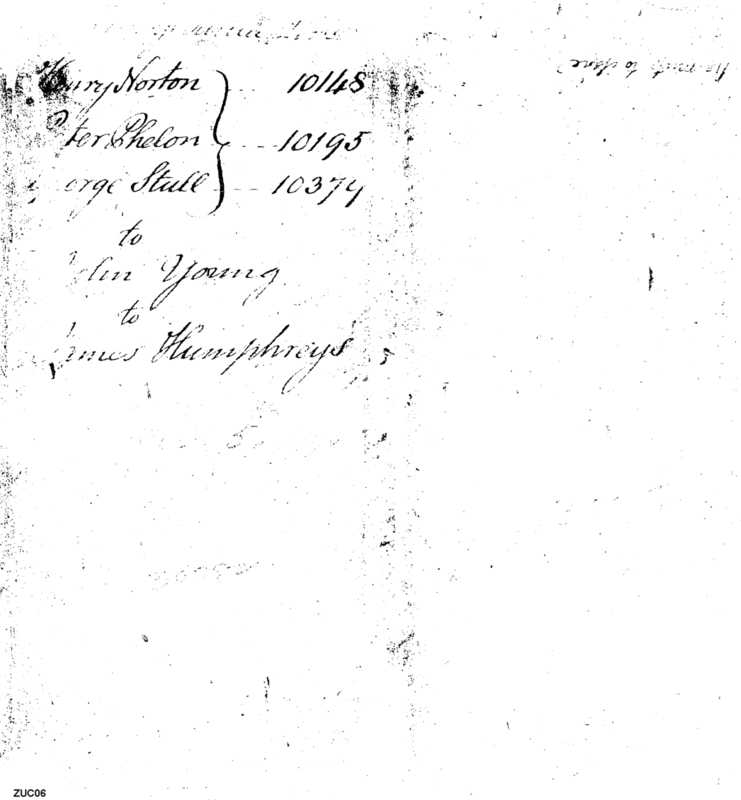 Henry Norton } 10148
Peter Phelon } 10195
George Stull } 10374
to
John Young
to
James Humphreys
ZUC06